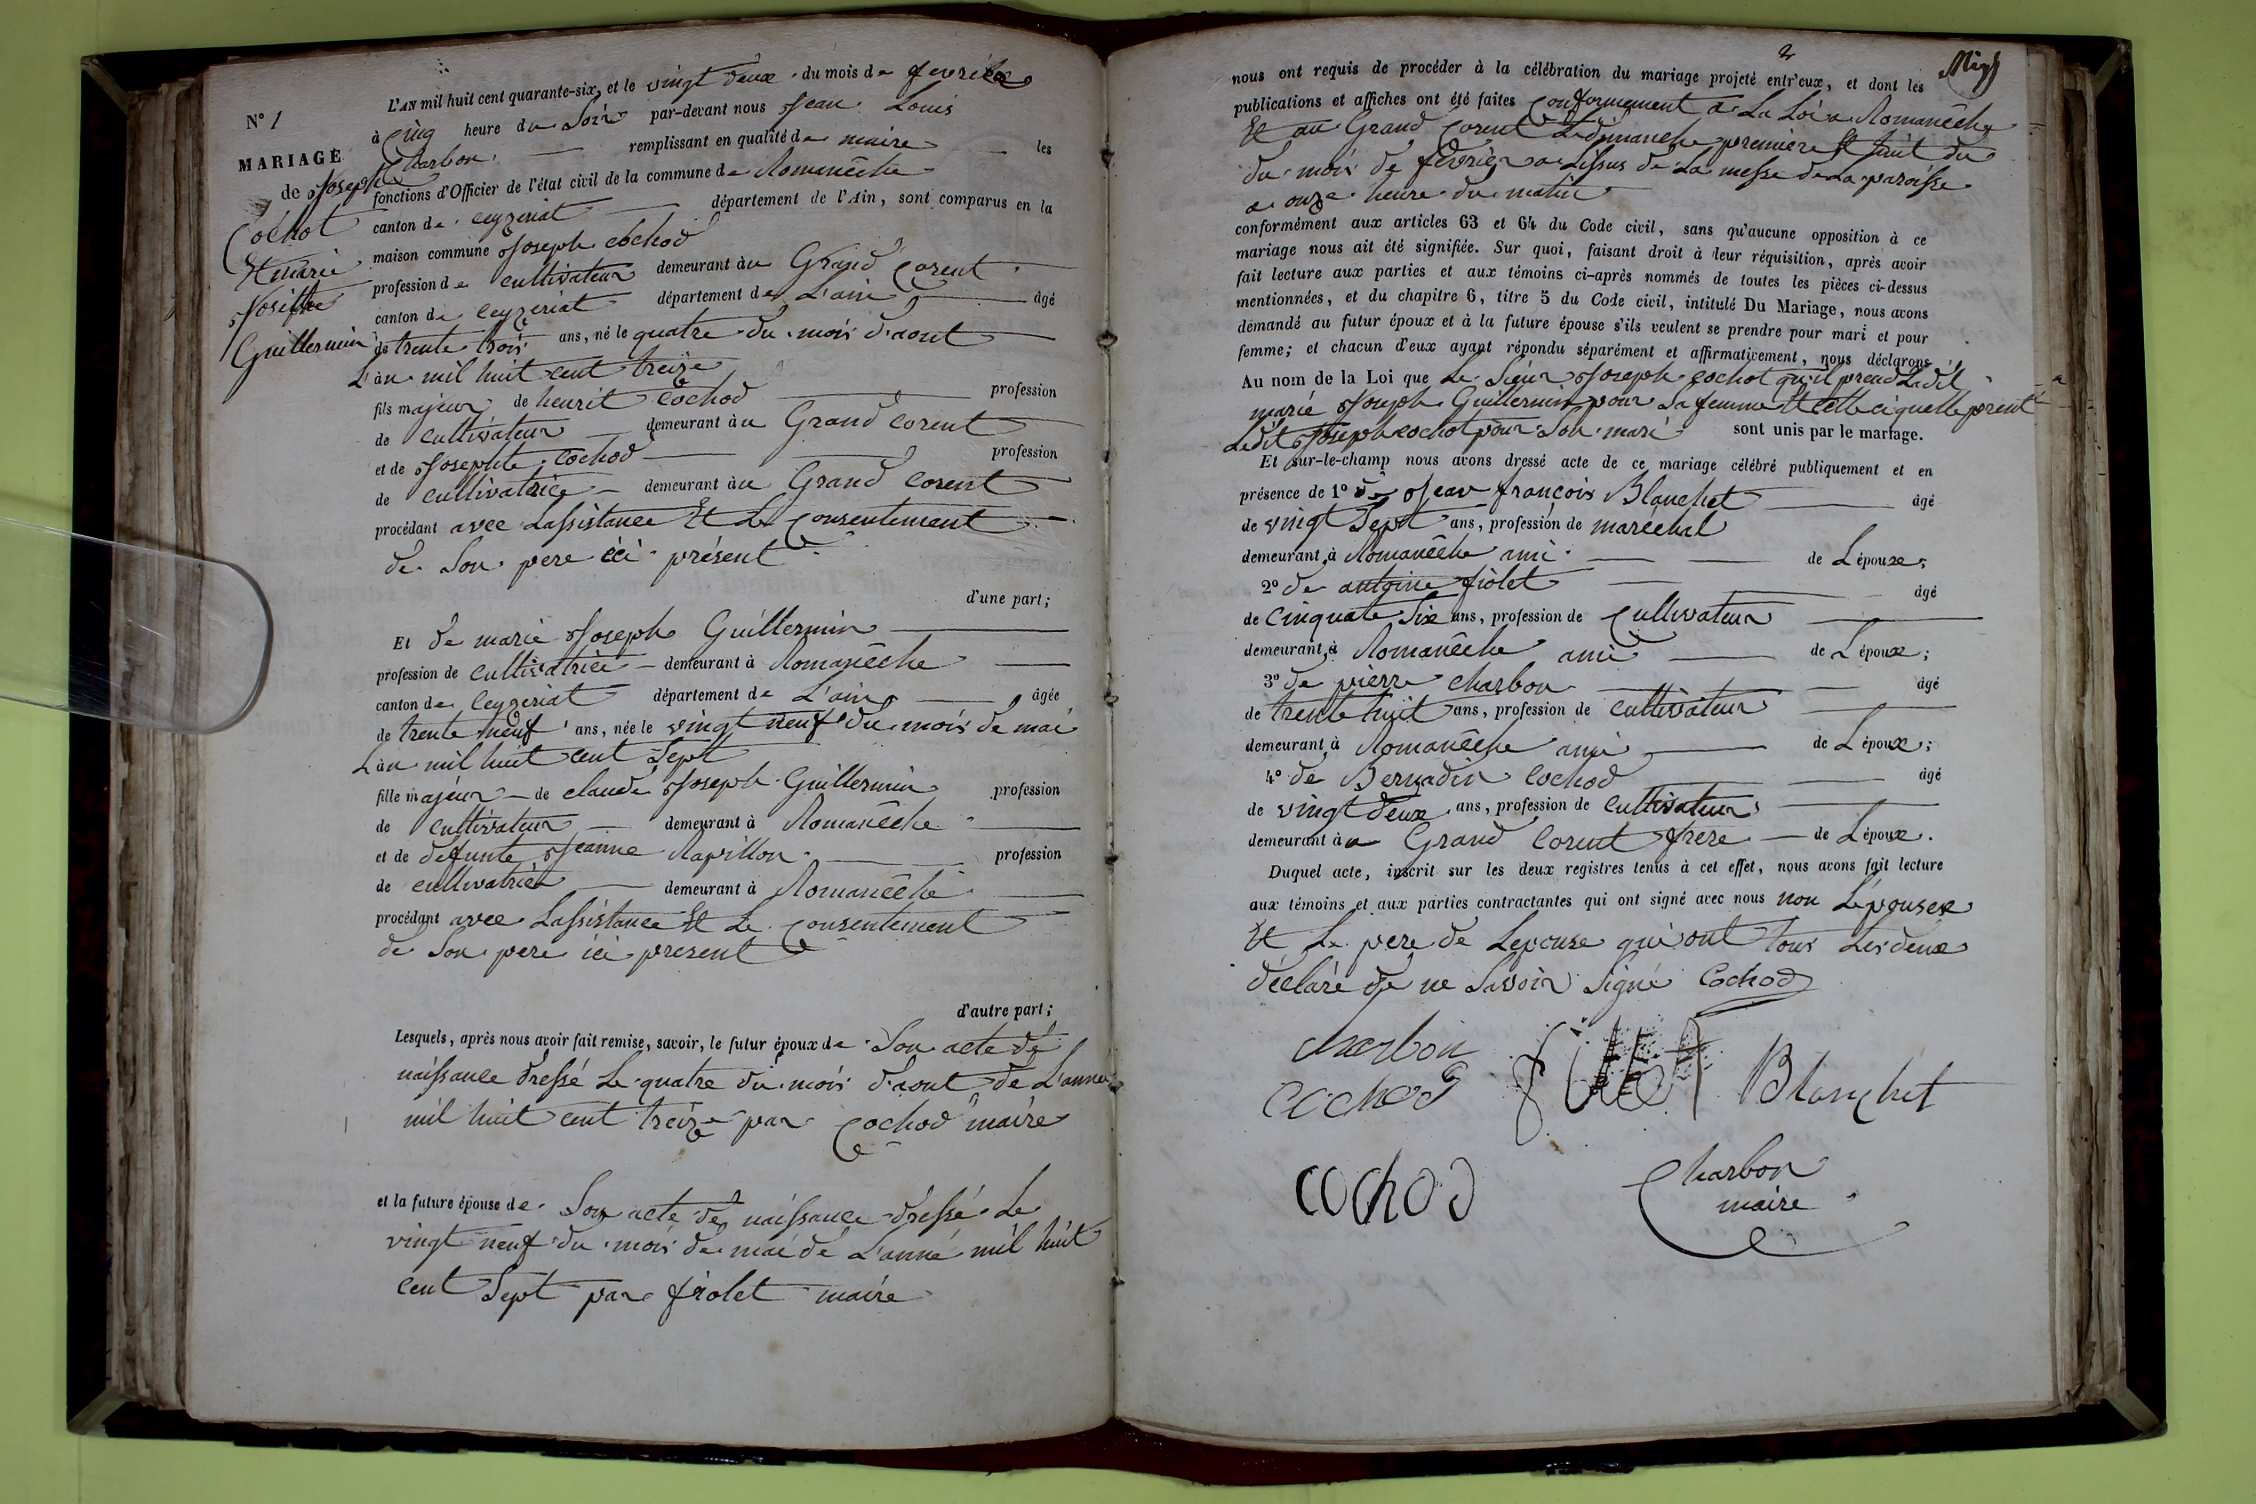 N° 1
MARIAGE
de Joseph
Cochot
Et marie
Josephte
Guillermin
L'AN mil huit cent quarante-six, et le vingt deux du mois de fevrier
à Cinq heure du Soir par-devant nous Jean Louis
Charbon remplissant en qualité de maire les
fonctions d'Officier de l'état civil de la commune de Romanêche
canton de ceyzeriat département de l'Ain, sont comparus en la
maison commune Joseph cochod
profession de cultivateur demeurant àu Grand Corent
canton de ceyzeriat département de L'ain âgé
de trente trois ans, né le quatre du mois d'aout
L'àn mil huit cent treize
fils majeur de henrit Cochod profession
de cultivateur demeurant àu Grand Corent
et de Josephte Cochod profession
de cultivatrice demeurant àu Grand Corent
procédant avec Lassistance Et Le Consentement
de Son pere ici présent
d'une part;
Et de marie Joseph Guillermin
profession de cultivatrice demeurant à Romanêche
canton de Ceyzeriat département de L'ain âgée
de trente neuf ans, née le vingt neuf du mois de mai
L'àn mil huit cent Sept
fille majeur de claude Joseph Guillermin profession
de cultivateur demeurant à Romanêche
et de defunte Jeanne Ravillon profession
de cultivatrice demeurant à Romanêche
procédant avec Lassistance Et Le Consentement
de Son pere ici present
d'autre part;
Lesquels, après nous avoir fait remise, savoir, le futur époux de Son acte de
naissance dressé Le quatre du mois d'aout de L'année
mil huit cent treize par Cochod maire
et la future épouse de Son acte de naissance dressé Le
vingt neuf du mois de mai de L'anné mil huit
cent Sept par fiolet maire
2
nous ont requis de procéder à la célébration du mariage projeté entr'eux, et dont les
publications et affiches ont été faites Conformement a La Loi a Romanêche
Et au Grand Corent Le dimanche premiere Et huit du
du mois de fevrier a Lissus de La messe de La paroisse
a onze heure du matin
conformément aux articles 63 et 64 du Code civil, sans qu'aucune opposition à ce
mariage nous ait été signifiée. Sur quoi, faisant droit à leur réquisition, après avoir
fait lecture aux parties et aux témoins ci-après nommés de toutes les pièces ci-dessus
mentionnées, et du chapitre 6, titre 5 du Code civil, intitulé Du Mariage, nous avons
demandé au futur époux et à la future épouse s'ils veulent se prendre pour mari et pour
femme; et chacun d'eux ayant répondu séparément et affirmativement, nous déclarons
Au nom de la Loi que Le Sieur Joseph cochot qu'il prend Ladit
marie Joseph Guillermin pour Sa femme Et celle ci quelle prent
Ledit Joseph cochot pour Son mari sont unis par le mariage.
Et sur-le-champ nous avons dressé acte de ce mariage célébré publiquement et en
présence de 1° de Jean françois Blanchet âgé
de vingt Sept ans, profession de marechal
demeurant à Romanêche ami de L'épouse;
2° de antoine fiolet âgé
de Cinquate Six ans, profession de Cultivateur
demeurant à Romanêche ami de L'époux;
3° de pierre Charbon âgé
de trente huit ans, profession de cultivateur
demeurant à Romanêche ami de L'époux;
4° de Bernadin Cochod âgé
de vingt deux ans, profession de Cultivateur
demeurant àu Grand Corent frere de L'époux.
Duquel acte, inscrit sur les deux registres tenus à cet effet, nous avons fait lecture
aux témoins et aux parties contractantes qui ont signé avec nous non L'épouse
Et Le pere de Lepouse qui ont tous Les deux
déclaré de ne Savoir Signé Cochod
charbon
cochod
Blanchet
cochod
Charbon
maire